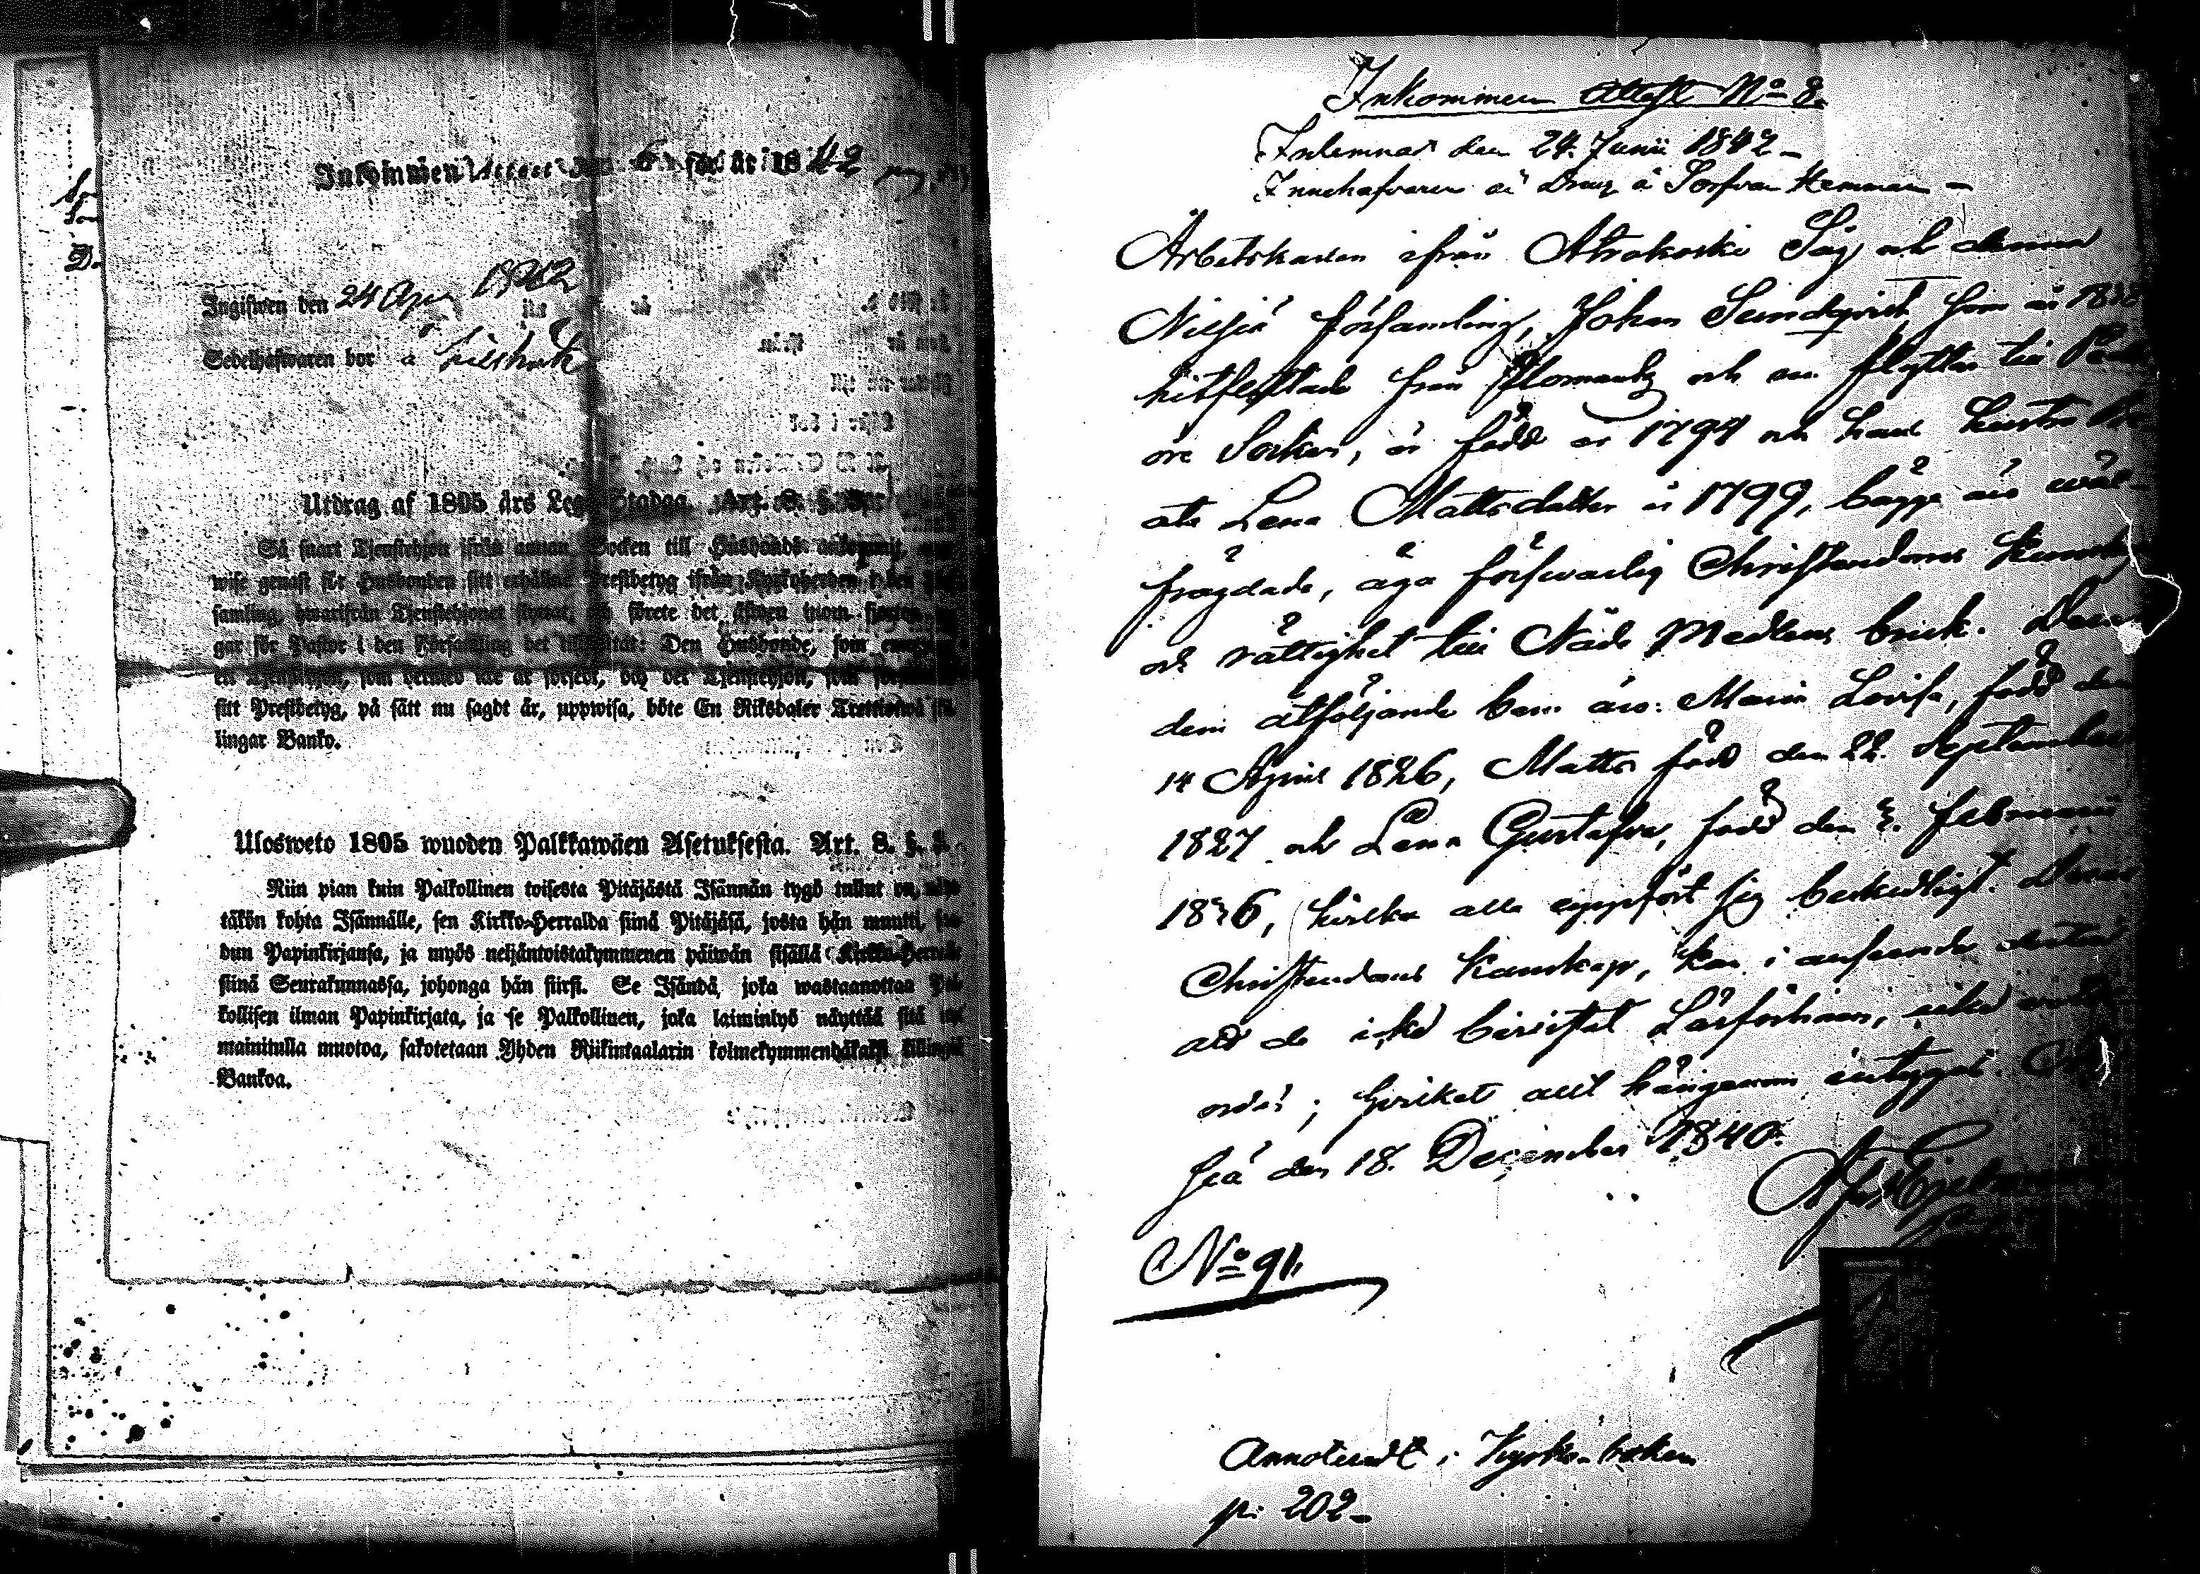 Inkommen Attest No 6 för år 1842
Ingifwen den 24 Apr 1842
Sedelhafwaren bor å
Utdrag af 1805 års Lego-Stadga. Art. 8. §. 3.
Så snart Tjenstehjon ifrån annan Socken till Husbonde ankommit,
wise genast för Husbonden sitt erhållna Prestbetyg ifrån Kyrkoherden i den
samling, hwarifrån Tjenstehjonet flyttat, och förete det äfwen inom fjorton
gar för Pastor i den Församling det tillflyttat: Den Husbonde, som
ett Tjenstehjon, som dermed icke är försedt, och det Tjenstehjon, som
sitt Prestbetyg, på sätt nu sagdt är, uppwisa, böte En Riksdaler Trettiotwå
lingar Banko.
Ulosweto 1805 wuoden Palkkawäen Asetuksesta. Art. 8. §. 3.
Niin pian kuin Palkollinen toisesta Pitäjästä Isännän tygö tullut on,
täkön kohta Isännälle, sen Kirkko-Herralda siinä Pitäjäsä, josta hän muutti,
dun Papinkirjansa, ja myös neljäntoistakymmenen päiwän sisällä Kirkko-Herralle
siinä Seurakunnassa, johonga hän siirsi. Se Isändä, joka wastaanottaa
kollisen ilman Papinkirjata, ja se Palkollinen, joka laiminlyö näyttää sitä
mainitulla muotoa, sakotetaan Yhden Riikintaalarin kolmekymmendäkaksi killingiä
Bankoa.
Inkommen Attest No 8.
Inlemnad den 24. Junii 1842 –
Innehafvaren är Dräng å Sorfva Hemman –
Arbetskarlen ifrån Ahrakoski Såg och denna
Nilsiä församling, Johan Sundqvist som år 1838
hitflyttade från Ilomants och nu flyttar till
öre Socken, är född år 1794 och hans hustru
ata Lena Mattsdotter år 1799, bägge äro wäl-
frägdade, äga försvarlig Christendoms kunskap
och rättighet till Nåde Medlens bruk. Deras
dem åtföljande barn äro: Maria Lovisa, född den
14 April 1826, Matts född den 22. September
1827 och Lena Gustafva, född den 3. Februarii
1836, hvilka alla uppfört sig beskedligt. Deras
Christendoms Kunskap, kan i anseende dertill
att de icke bevistat Läsförhören, icke
ordas; hvilket allt härigenom intygas.
siä den 18. December 1840.
No 91.
Annoteradt i Kyrko-boken
p. 202 –